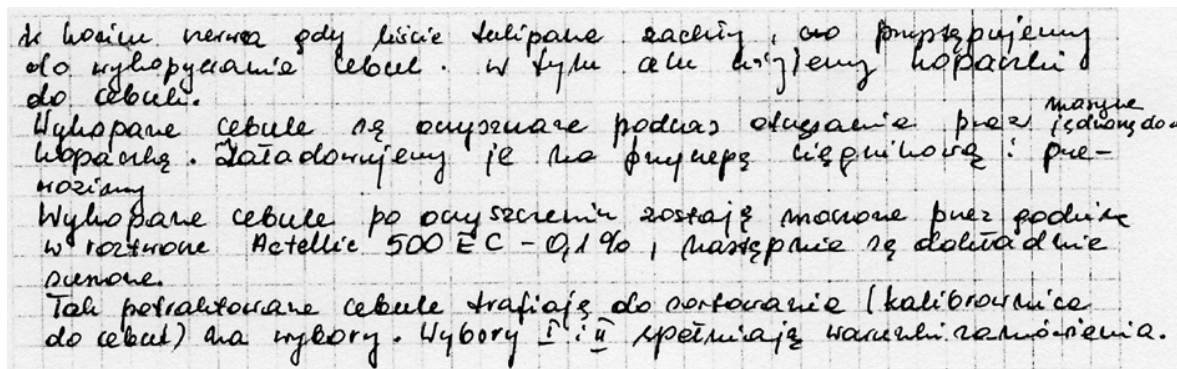 W końcu czerwca gdy liście tulipana zaschły, to przystępujemy
do wykopywania cebul. W tym celu używamy kopaczki
do cebuli.
Wykopane cebule są oczyszczane podczas otrząsania przez maszynę
kopaczką. Załadowujemy je na przyczepę ciągnikową i prze-
wozimy
Wykopane cebule po oczyszczeniu zostają moczone przez godzinę
w roztworze Actellic 500 EC - 0,1%, następnie są dokładnie
suszone.
Tak potraktowane cebule trafiają do sortowania (kalibrownica
do cebul) na wybory. Wybory I i II spełniają warunki zamówienia.